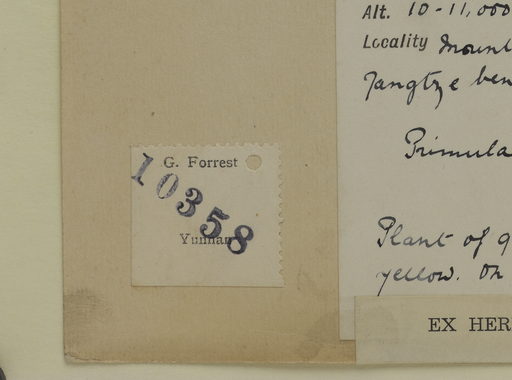 G. Forrest
10358
Yunnan
Alt. 10-11,000
Locality Mount
Yangtze ben
Primula
Plant of 9
yellow. On
EX HER